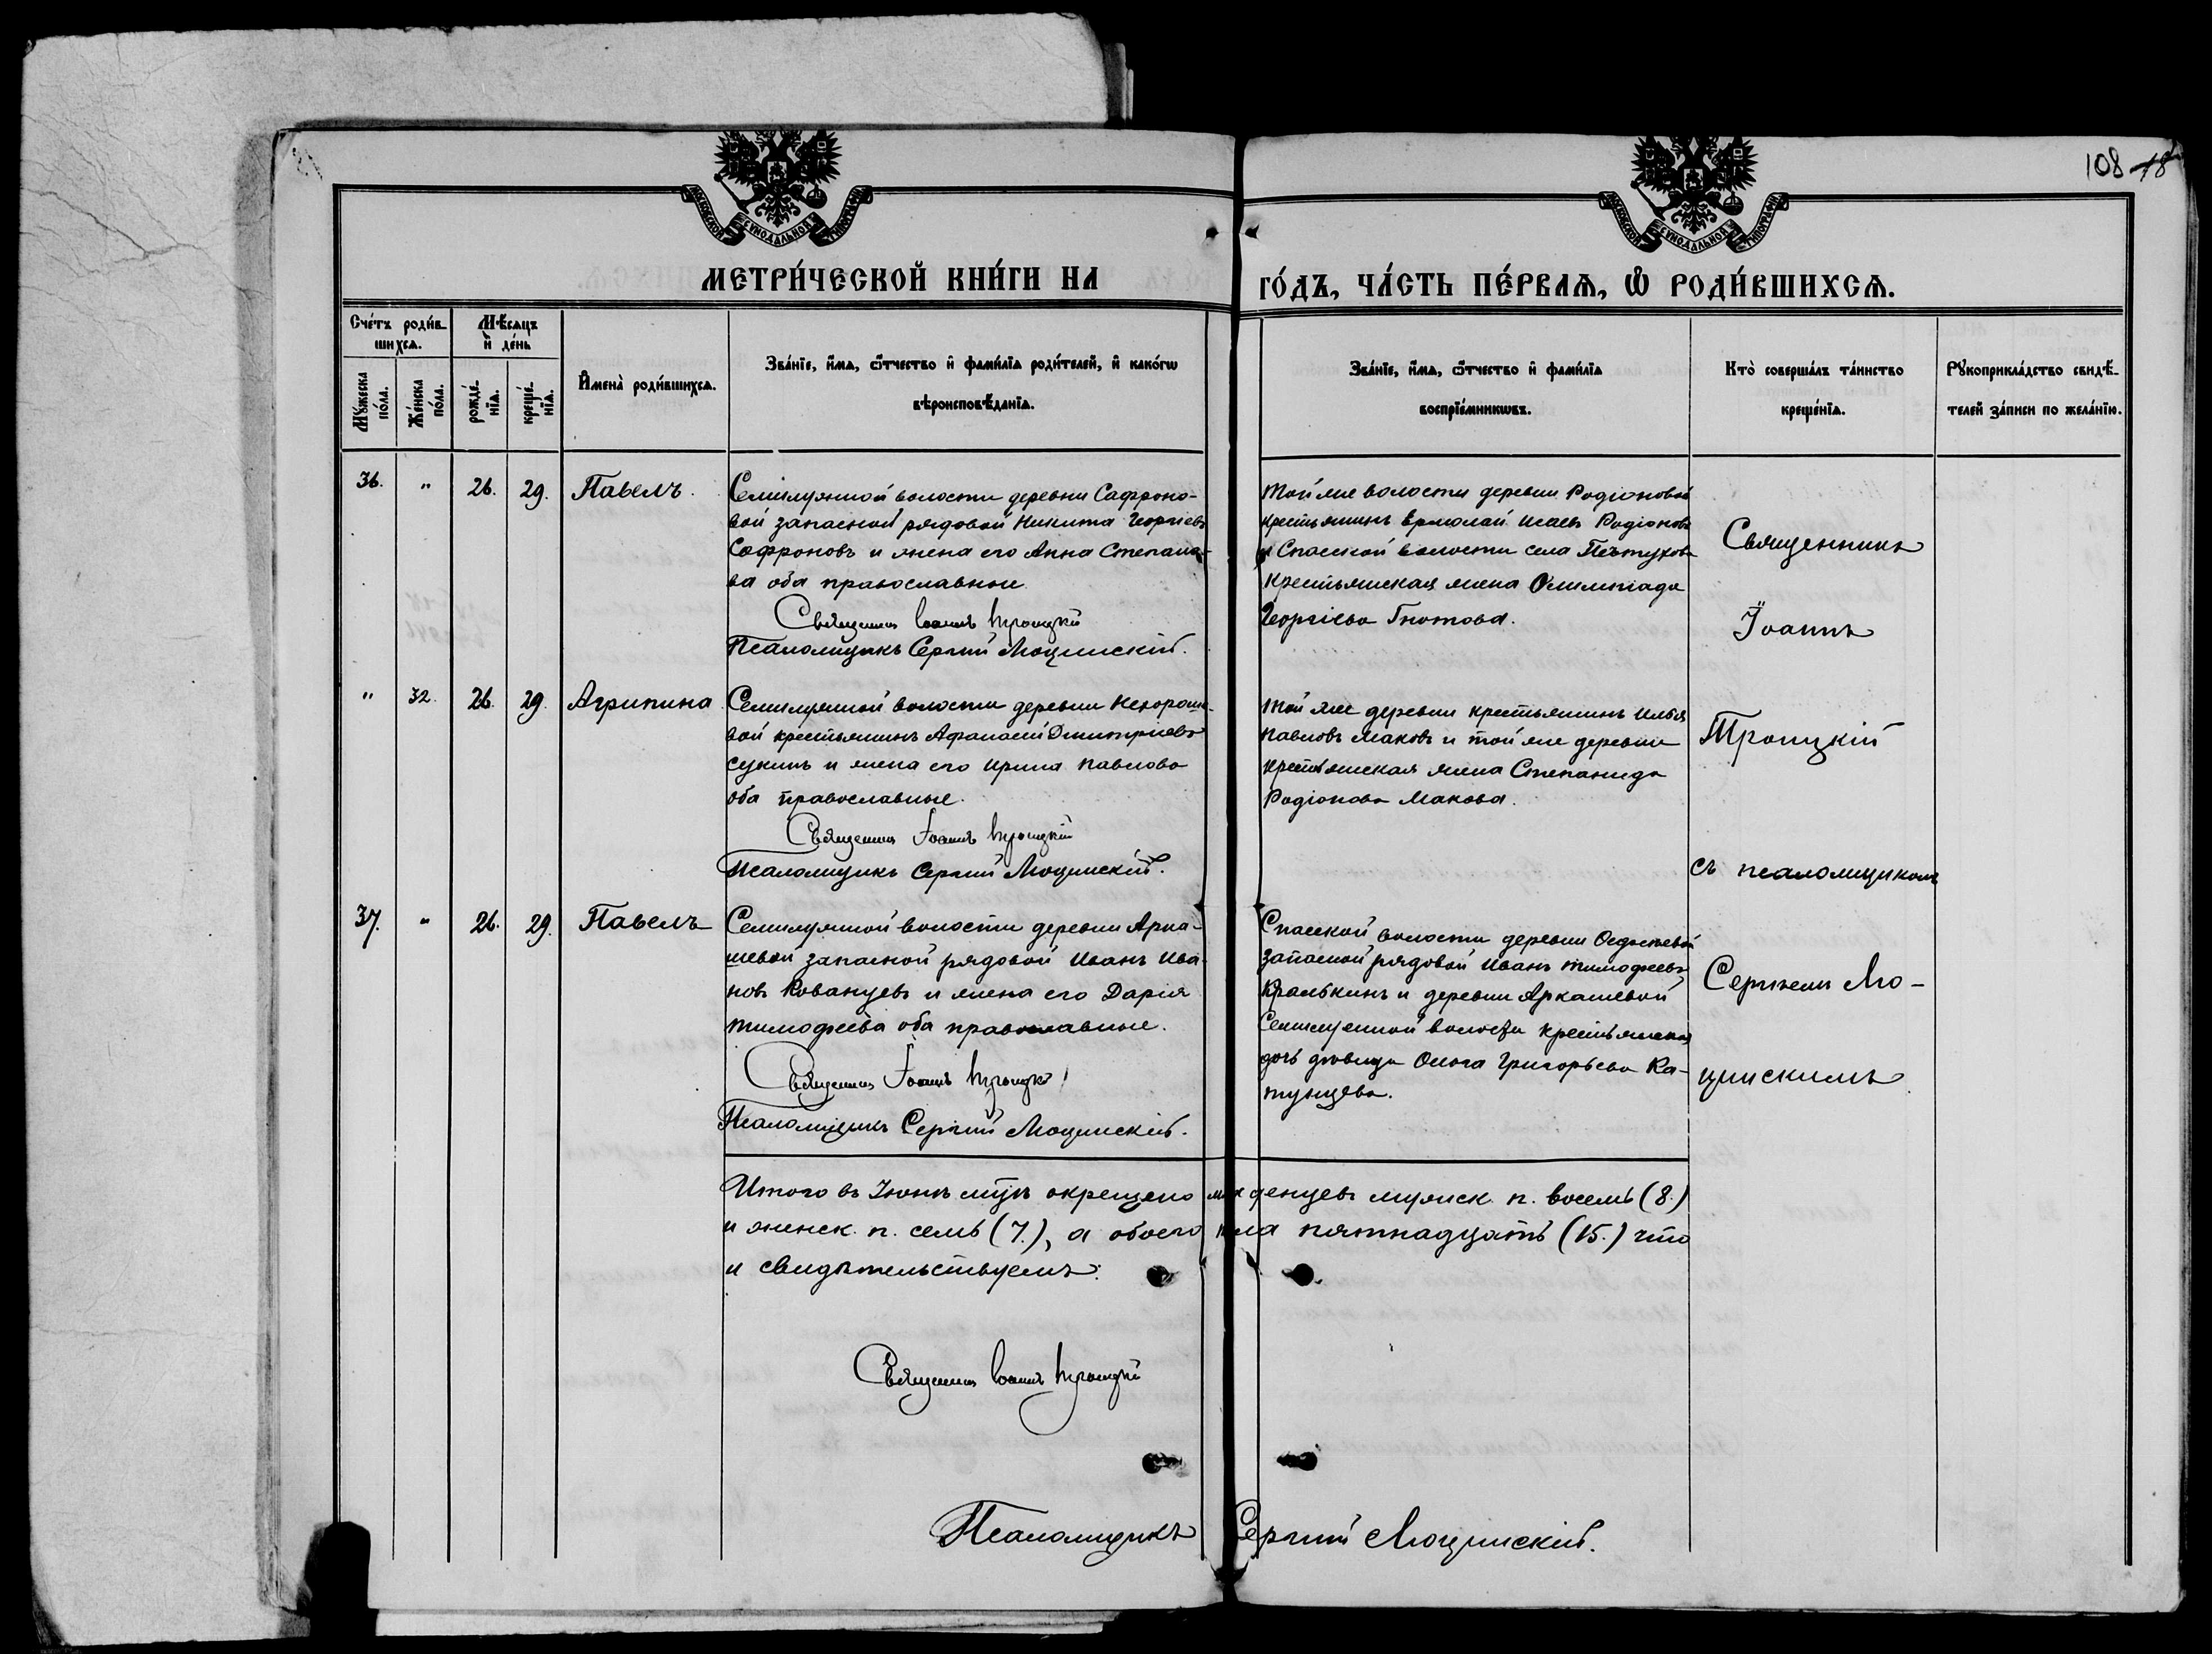 108 18
МОСКОВСКОЙ СУНОДАЛЬНОЙ ТИПОГРАФІИ
МОСКОВСКОЙ СУНОДАЛЬНОЙ ТИПОГРАФІИ
МЕТРИ́ЧЕСКОЙ КНИ́ГИ НА
ГО́ДЪ, ЧА́СТЬ ПЕ́РВАѦ, Ѡ҆ РОДИ́ВШИХСѦ.
Сче́тъ роди́в-
шихсѧ.
Мѣ́сѧцъ
и҆ де́нь
Мꙋ́жеска
по́ла.
Же́нска
по́ла.
рожде́-
нїѧ.
креще́-
нїѧ.
И҆мена̀ роди́вшихсѧ.
Зва́нїе, и҆́мѧ, ѻ҆́тчество и҆ фами́лїѧ роди́телей, и҆ како́гѡ
вѣроисповѣ́данїѧ.
Зва́нїе, и҆́мѧ, ѻ҆́тчество и҆ фами́лїѧ
воспрїе́мникѡвъ.
Кто̀ соверша́лъ та́инство
креще́нїѧ.
Рꙋкоприкла́дство свидѣ́-
телей за́писи по жела́нїю.
36. " 26. 29. Павелъ.
Семилужной волости деревни Сафроно-
вой запасной рядовой Никита Георгіевъ
Сафроновъ и жена его Анна Степано-
ва оба православные
Священникъ Іоаннъ Троицкій
Псаломщикъ Сергій Моцинскій.
той же волости деревни Родіоновой
крестьянинъ Ермолай Исаевъ Родіоновъ
и Спасской волости села Пѣтухова
крестьянская жена Олимпіада
Георгіева Гнотова.
Священникъ
Іоаннъ
" 32. 26. 29. Агрипина
Семилужной волости деревни Нехороше-
вой крестьянинъ Афанасій Дмитріевъ
Сукинъ и жена его Ирина Павлова
оба православные.
Священникъ Іоаннъ Троицкій
Псаломщикъ Сергій Моцинскій.
той же деревни крестьянинъ Илья
Павловъ Маковъ и той же деревни
крестьянская жена Степанида
Родіонова Макова.
Троицкій
съ псаломщикомъ
37. " 26. 29. Павелъ
Семилужной волости деревни Арка-
шевой запасной рядовой Иванъ Ива-
новъ Кованцевъ и жена его Дарія
Тимофѣева оба православные.
Священникъ Іоаннъ Троицкій
Псаломщикъ Сергій Моцинскій.
Спасской волости деревни
запасной рядовой Иванъ Тимофеевъ
Кралькинъ и деревни Аркашевой
Семилужной волости крестьянская
дочь дѣвица Ольга Григорьева Ка-
тунцева.
Сергіемъ Мо-
цинскимъ
Итого въ Іюнѣ м-цѣ окрещено младенцевъ мужск. п. восемь (8.)
и женск. п. семь (7.), а обоего пола пятнадцать (15.) что
и свидѣтельствуемъ:
Священникъ Іоаннъ Троицкій
Псаломщикъ Сергій Моцинскій.